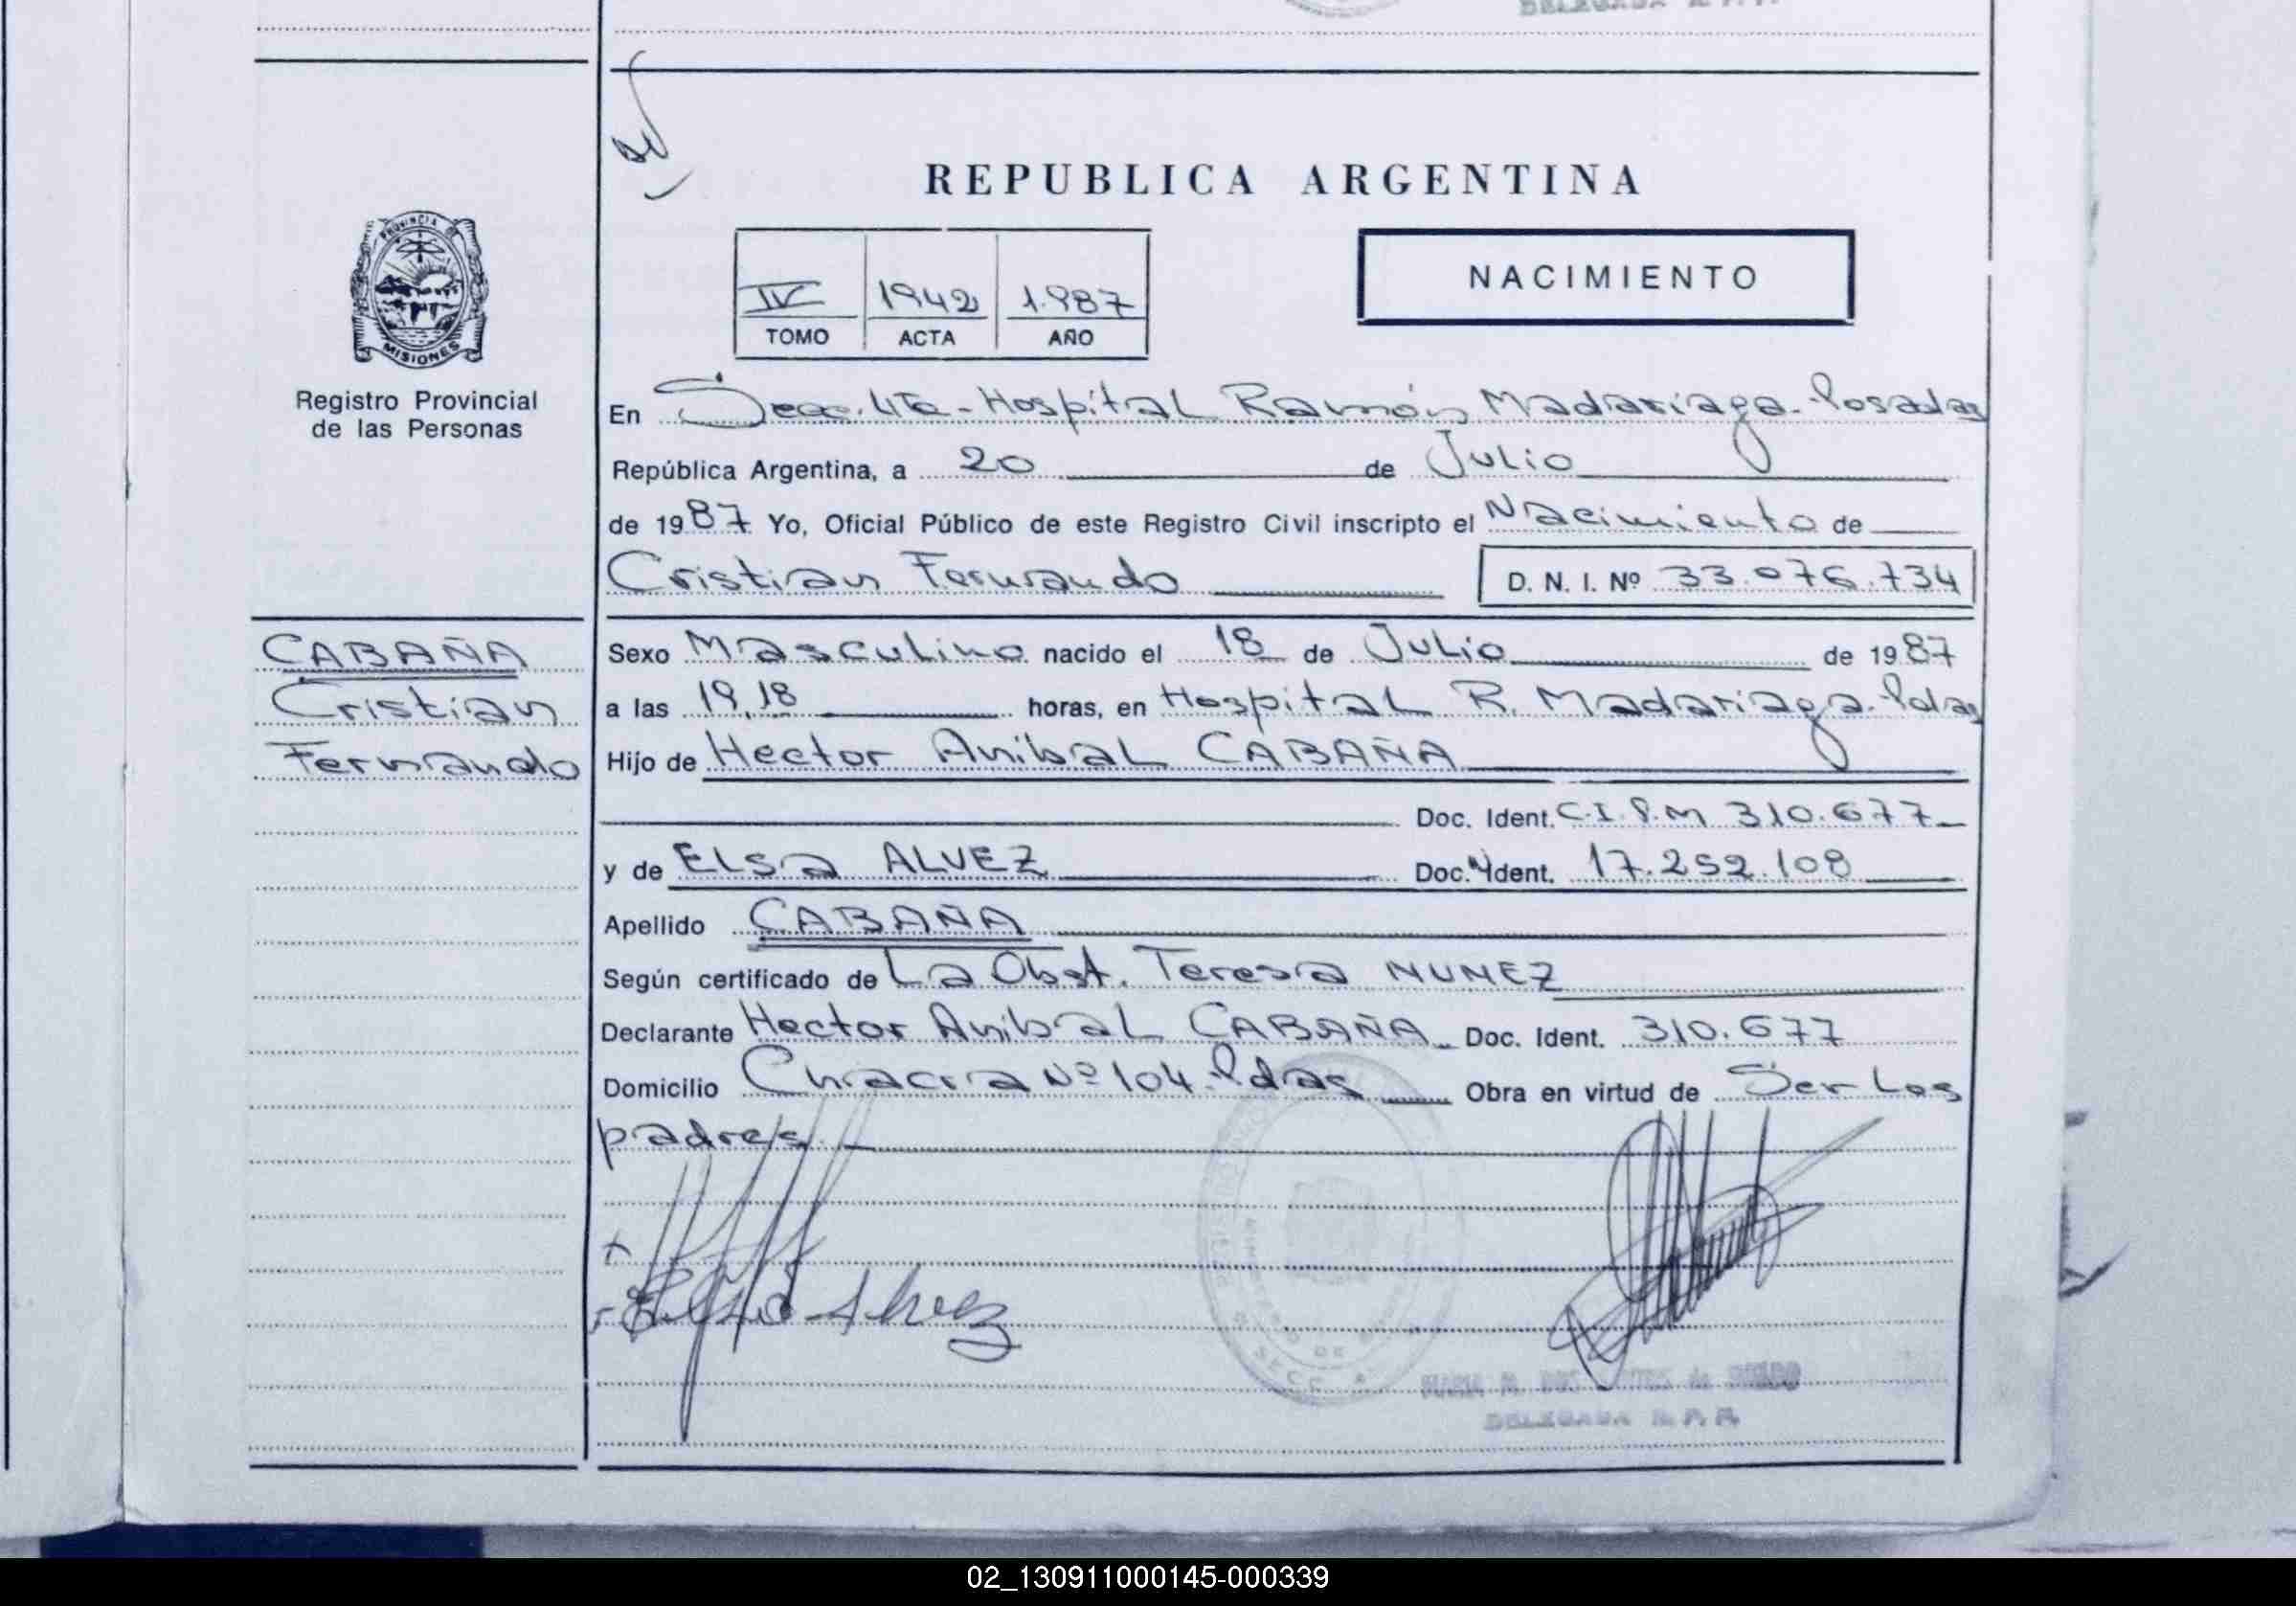 DELEGADA R.P.P.
REPUBLICA ARGENTINA
PROVINCIA DE
MISIONES
Registro Provincial
de las Personas
IV 1942 1.987
TOMO ACTA AÑO
NACIMIENTO
En Secc. 4ta - Hospital Ramón Madariaga - Posadas
República Argentina, a 20 de Julio
de 1987 Yo, Oficial Público de este Registro Civil inscripto el Nacimiento de
Cristian Fernando D. N. I. Nº 33.076.734
CABAÑA
Cristian
Fernando
Sexo Masculino nacido el 18 de Julio de 1987
a las 19,18 horas, en Hospital R. Madariaga - Pdas
Hijo de Hector Anibal CABAÑA
Doc. Ident. C.I.P.M 310.677
y de ELSA ALVEZ Doc. Ident. 17.252.108
Apellido CABAÑA
Según certificado de La Obst. Teresa NUNEZ
Declarante Hector Anibal CABAÑA Doc. Ident. 310.677
Domicilio Chacra Nº 104. Pdas Obra en virtud de Ser Los
padres.
Elsa Alvez
DELEGADA R.P.P.
02_130911000145-000339